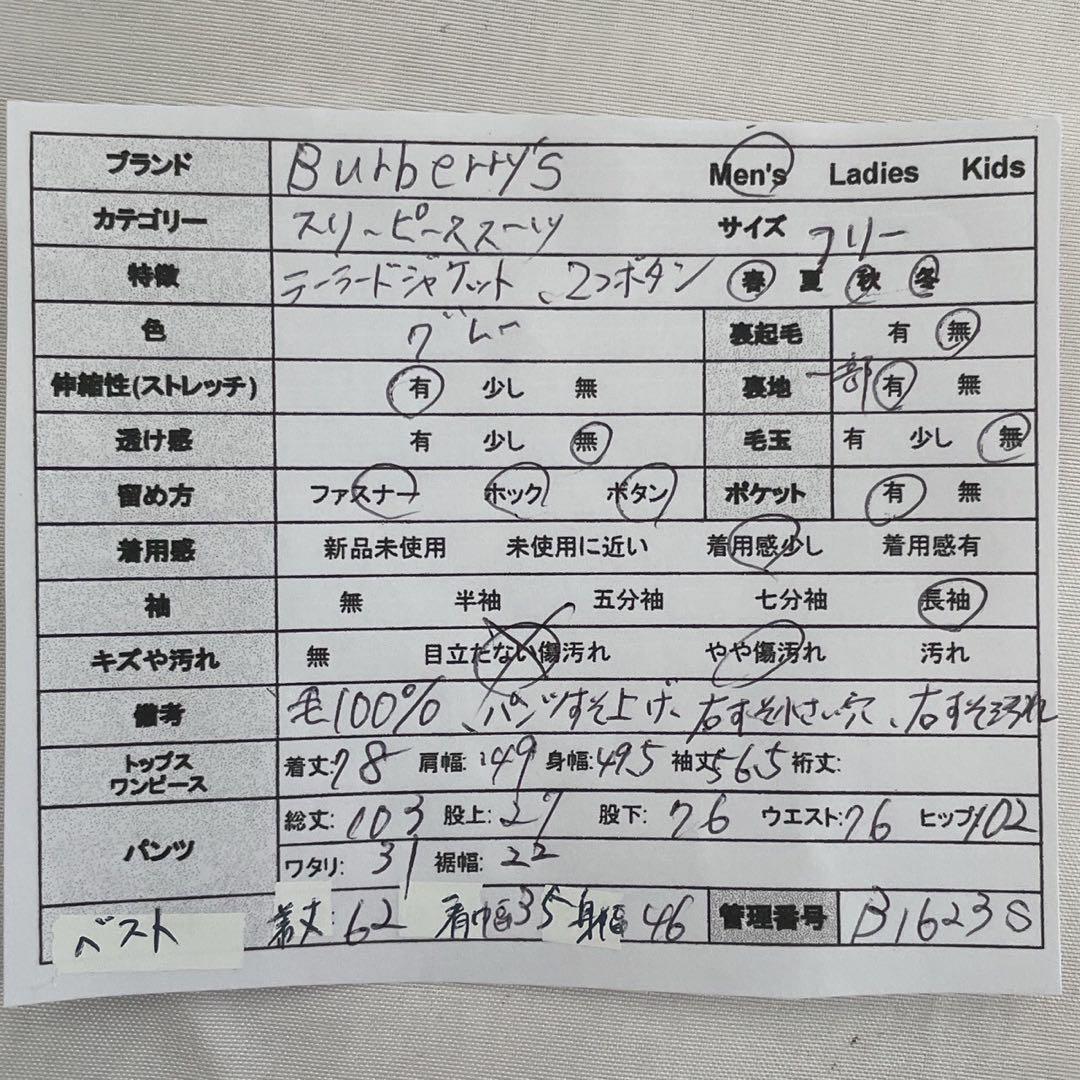 ブランド Burberry's Men's Ladies Kids
カテゴリー スリーピーススーツ サイズ フリー
特徴 テーラードジャケット、2つボタン 春 夏 秋 冬
色 グレー 裏起毛 有 無
伸縮性(ストレッチ) 有 少し 無 裏地 一部 有 無
透け感 有 少し 無 毛玉 有 少し 無
留め方 ファスナー ホック ボタン ポケット 有 無
着用感 新品未使用 未使用に近い 着用感少し 着用感有
袖 無 半袖 五分袖 七分袖 長袖
キズや汚れ 無 目立たない傷汚れ やや傷汚れ 汚れ
備考 毛100%、パンツすそ上げ、右すそ小さい穴、右すそ汚れ
トップス ワンピース 着丈:78 肩幅:49 身幅:49.5 袖丈56.5 裄丈:
パンツ 総丈:103 股上:27 股下:76 ウエスト:76 ヒップ102
ワタリ:31 裾幅:22
ベスト 着丈:62 肩幅35 身幅46 管理番号 B1623S